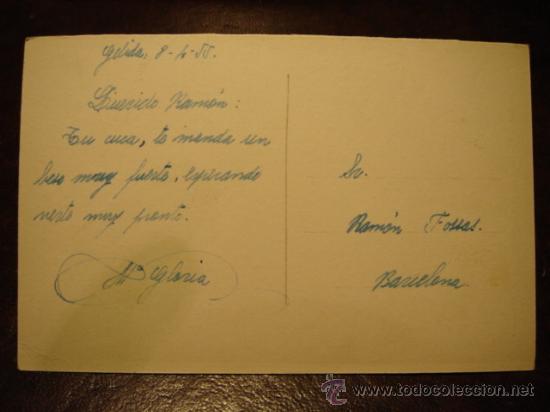 Gelida, 8-4-55.
Querido Ramón:
Tu cuca, te manda un
beso muy fuerte, esperando
verte muy pronto.
Mª Gloria
Sr.
Ramón Fossas.
Barcelona.
todocoleccion
www.todocoleccion.net